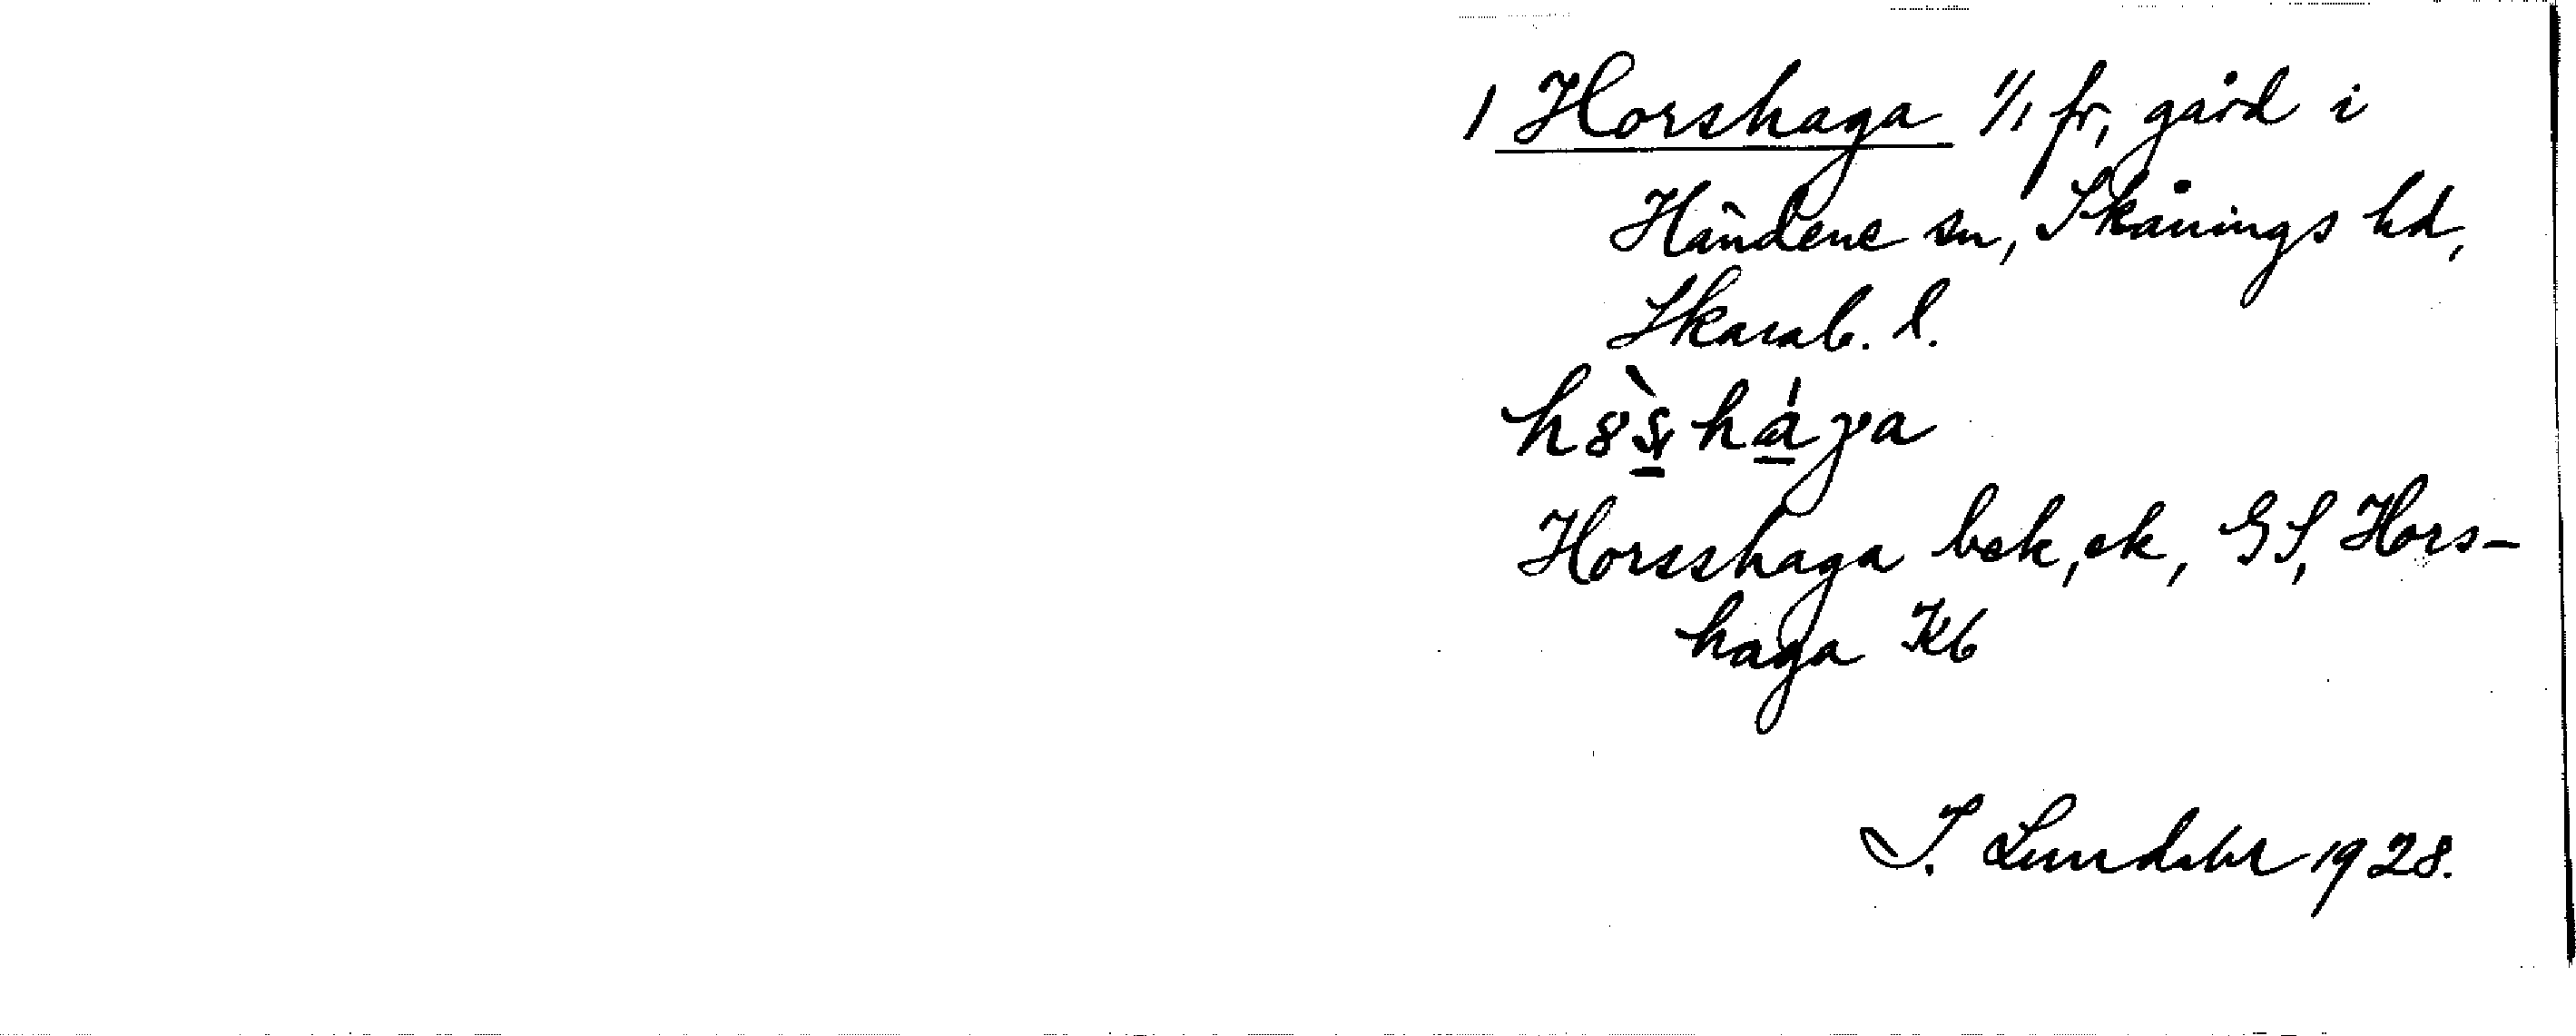 1 Horshaga 1/1 fr, gård i
Händene sn, Skånings hd,
Skarab. l.
h8̀s̱há̱ɣa
Horsshaga bek, ek, GS, Hors-
haga Kb
S. Lundahl 1928.